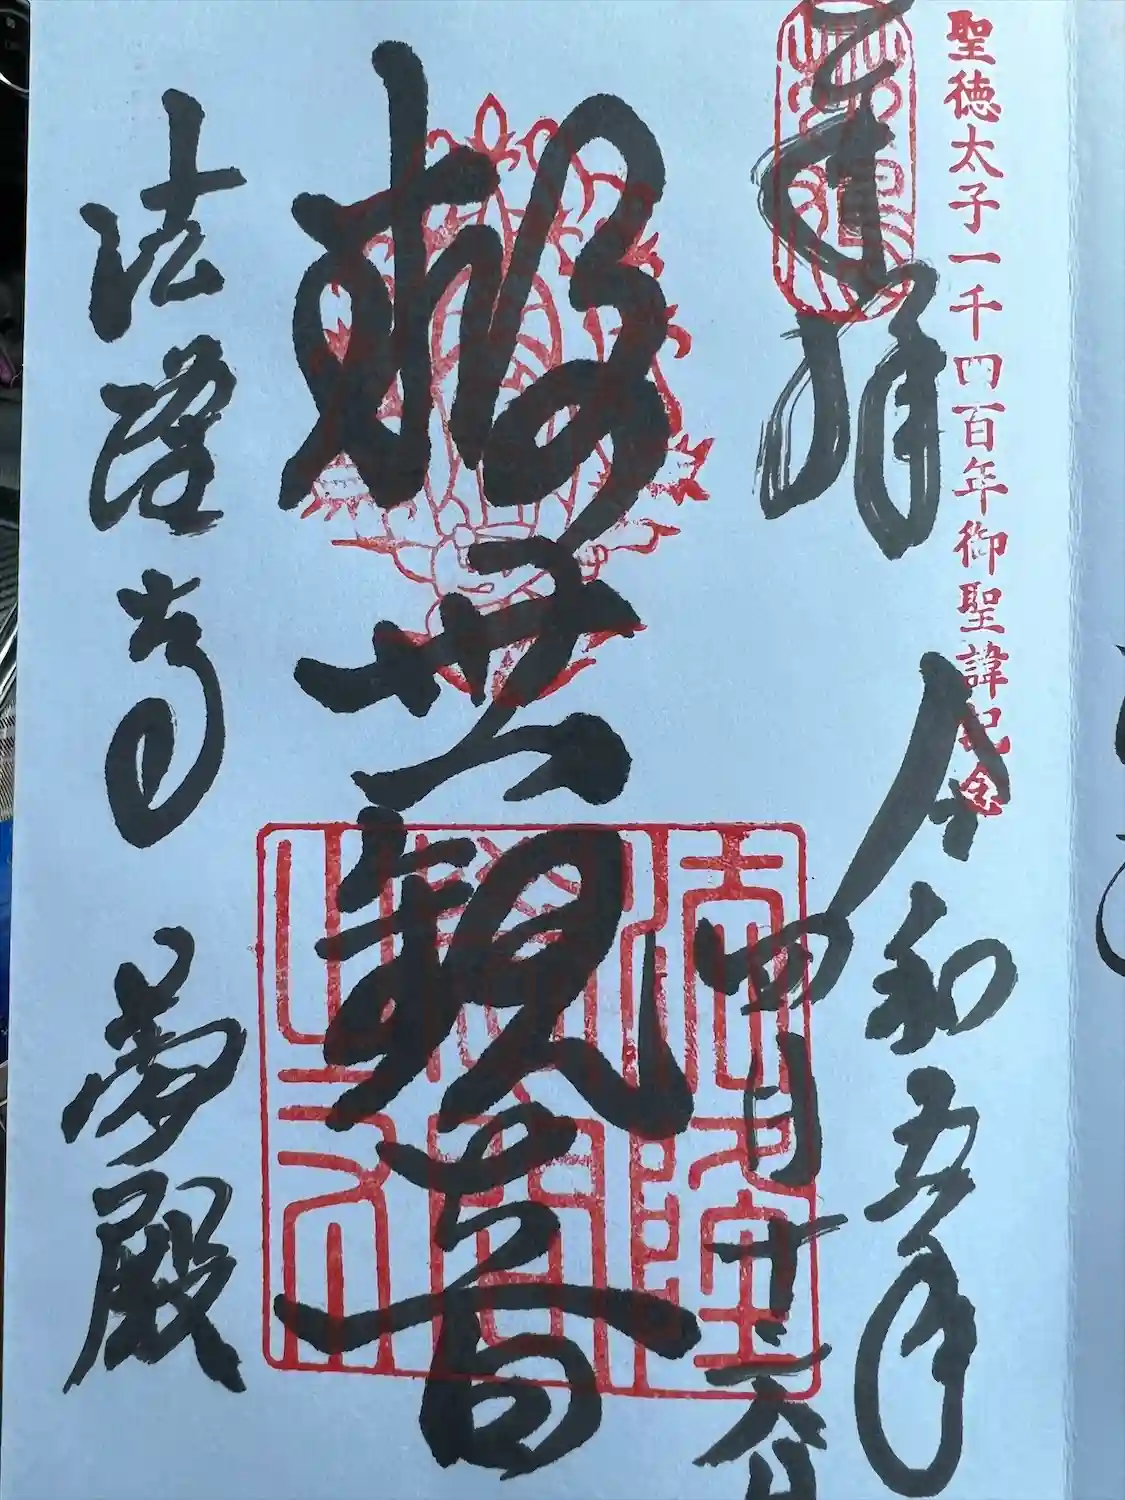 聖徳太子一千四百年御聖諱記念
奉拝
令和五年
四月十六日
救世観音
法隆寺 夢殿